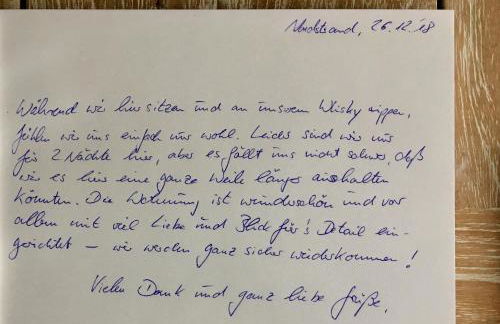 Nordstrand, 26.12.'18
Während wir hier sitzen und an unserem Whisky nippen,
fühlen wir uns einfach nur wohl. Leider sind wir nur
für 2 Nächte hier, aber es fällt uns nicht schwer, daß
wir es hier eine ganze Weile länger aushalten
könnten. Die Wohnung ist wunderschön und vor
allem mit viel Liebe und Blick für's Detail ein-
gerichtet – wir werden ganz sicher wiederkommen!
Vielen Dank und ganz liebe Grüße,